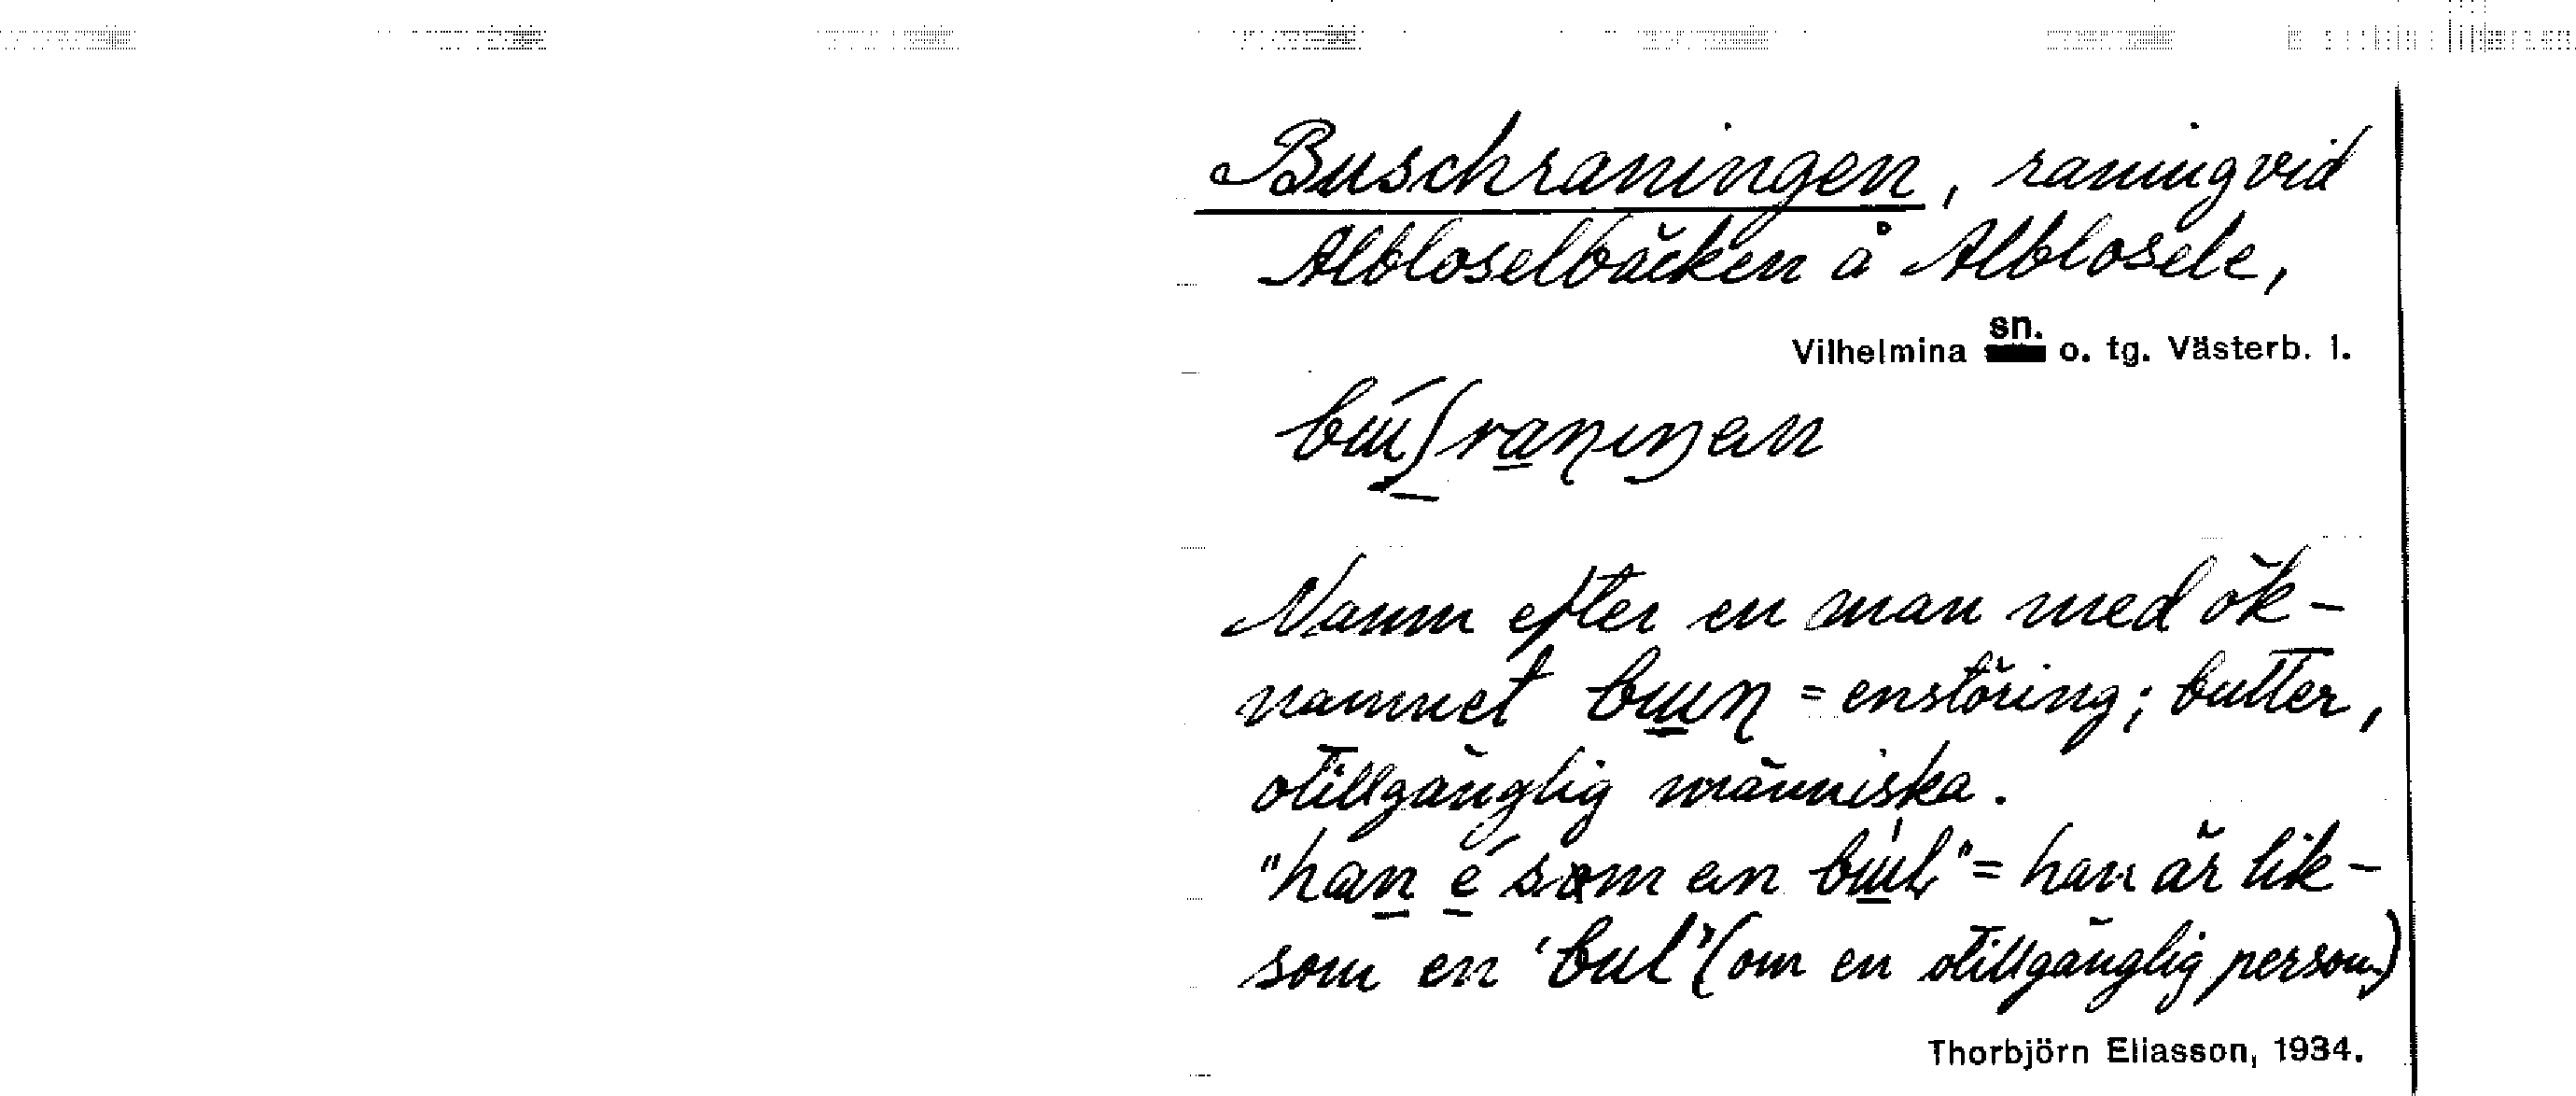 Buschraningen, raning vid
Albloselbäcken å Alblosele,
Vilhelmina sn. o. tg. Västerb. l.
Namn efter en man med ök-
namnet = enstöring; butter,
otillgänglig människa.
"han é som en = han är lik-
som en 'bul' (om en otillgänglig person)
Thorbjörn Eliasson, 1934.